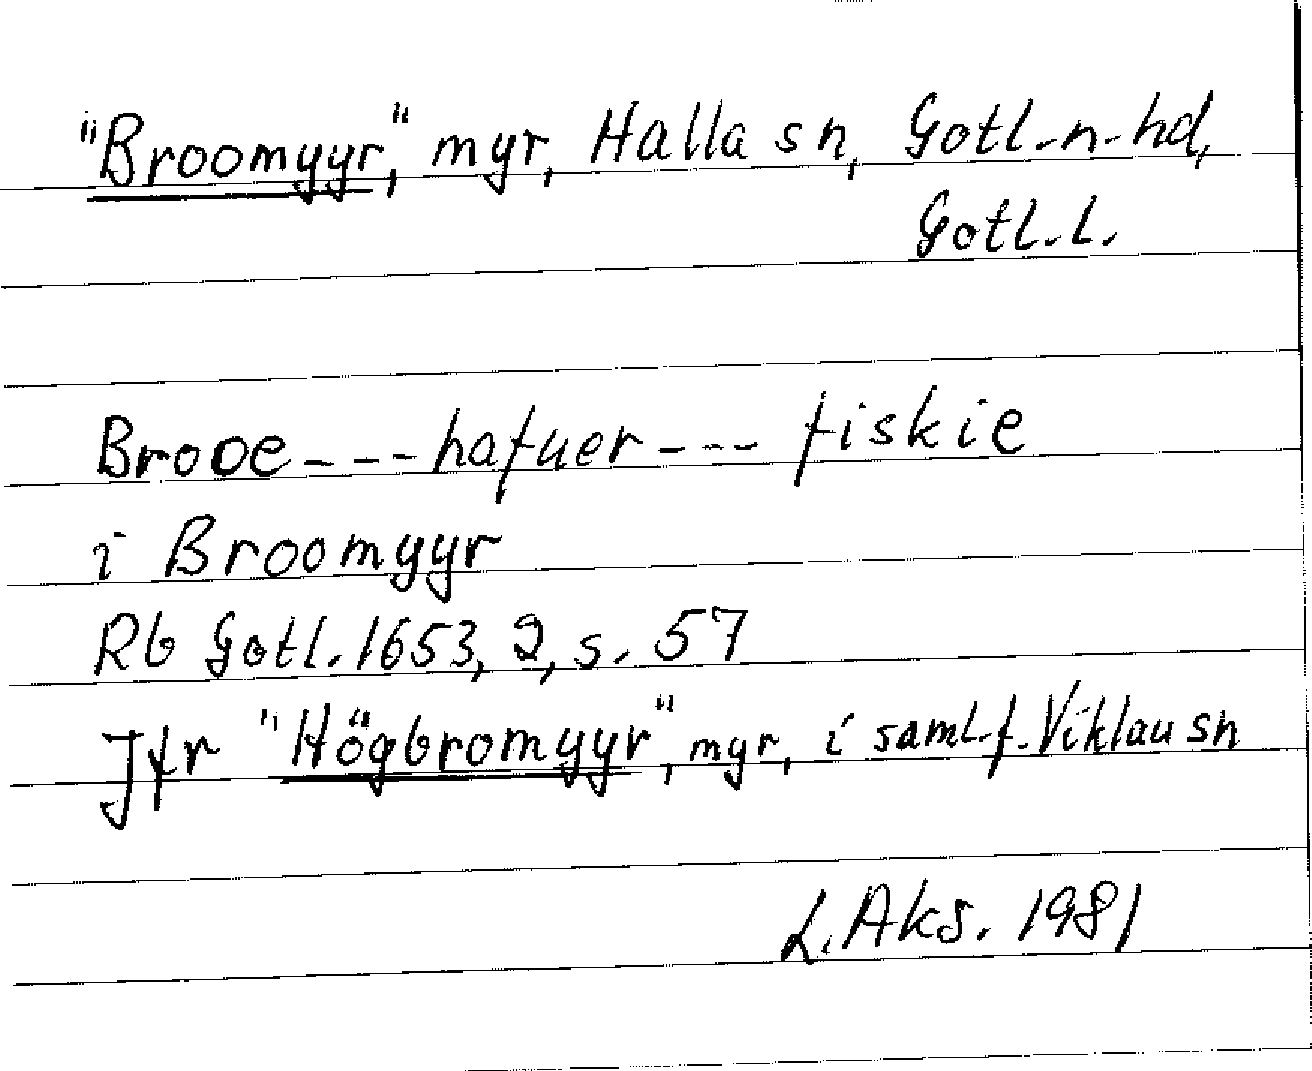 "Broomyyr," myr, Halla sn, Gotl.n.hd,
Gotl.l.
Brooe --- hafuer --- fiskie
i Broomyyr
Rb Gotl. 1653, 2, s. 57
Jfr "Högbromyyr", myr, i saml.f. Viklau sn
L. Aks. 1981